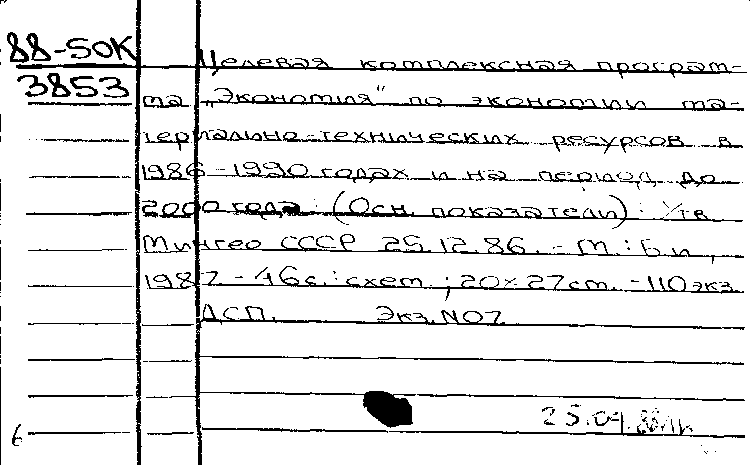 88-50К
3853
Целевая комплексная програм-
ма „Экономия" по экономии ма-
териально-технических ресурсов в
1986-1990 годах и на период до
2000 года: (Осн. показатели): Утв.
Мингео СССР 25.12.86. - М.: Б.и.,
1987. - 46с.: схем.; 20×27см. - 110экз.
ДСП. Экз. №07
25.04.88
6